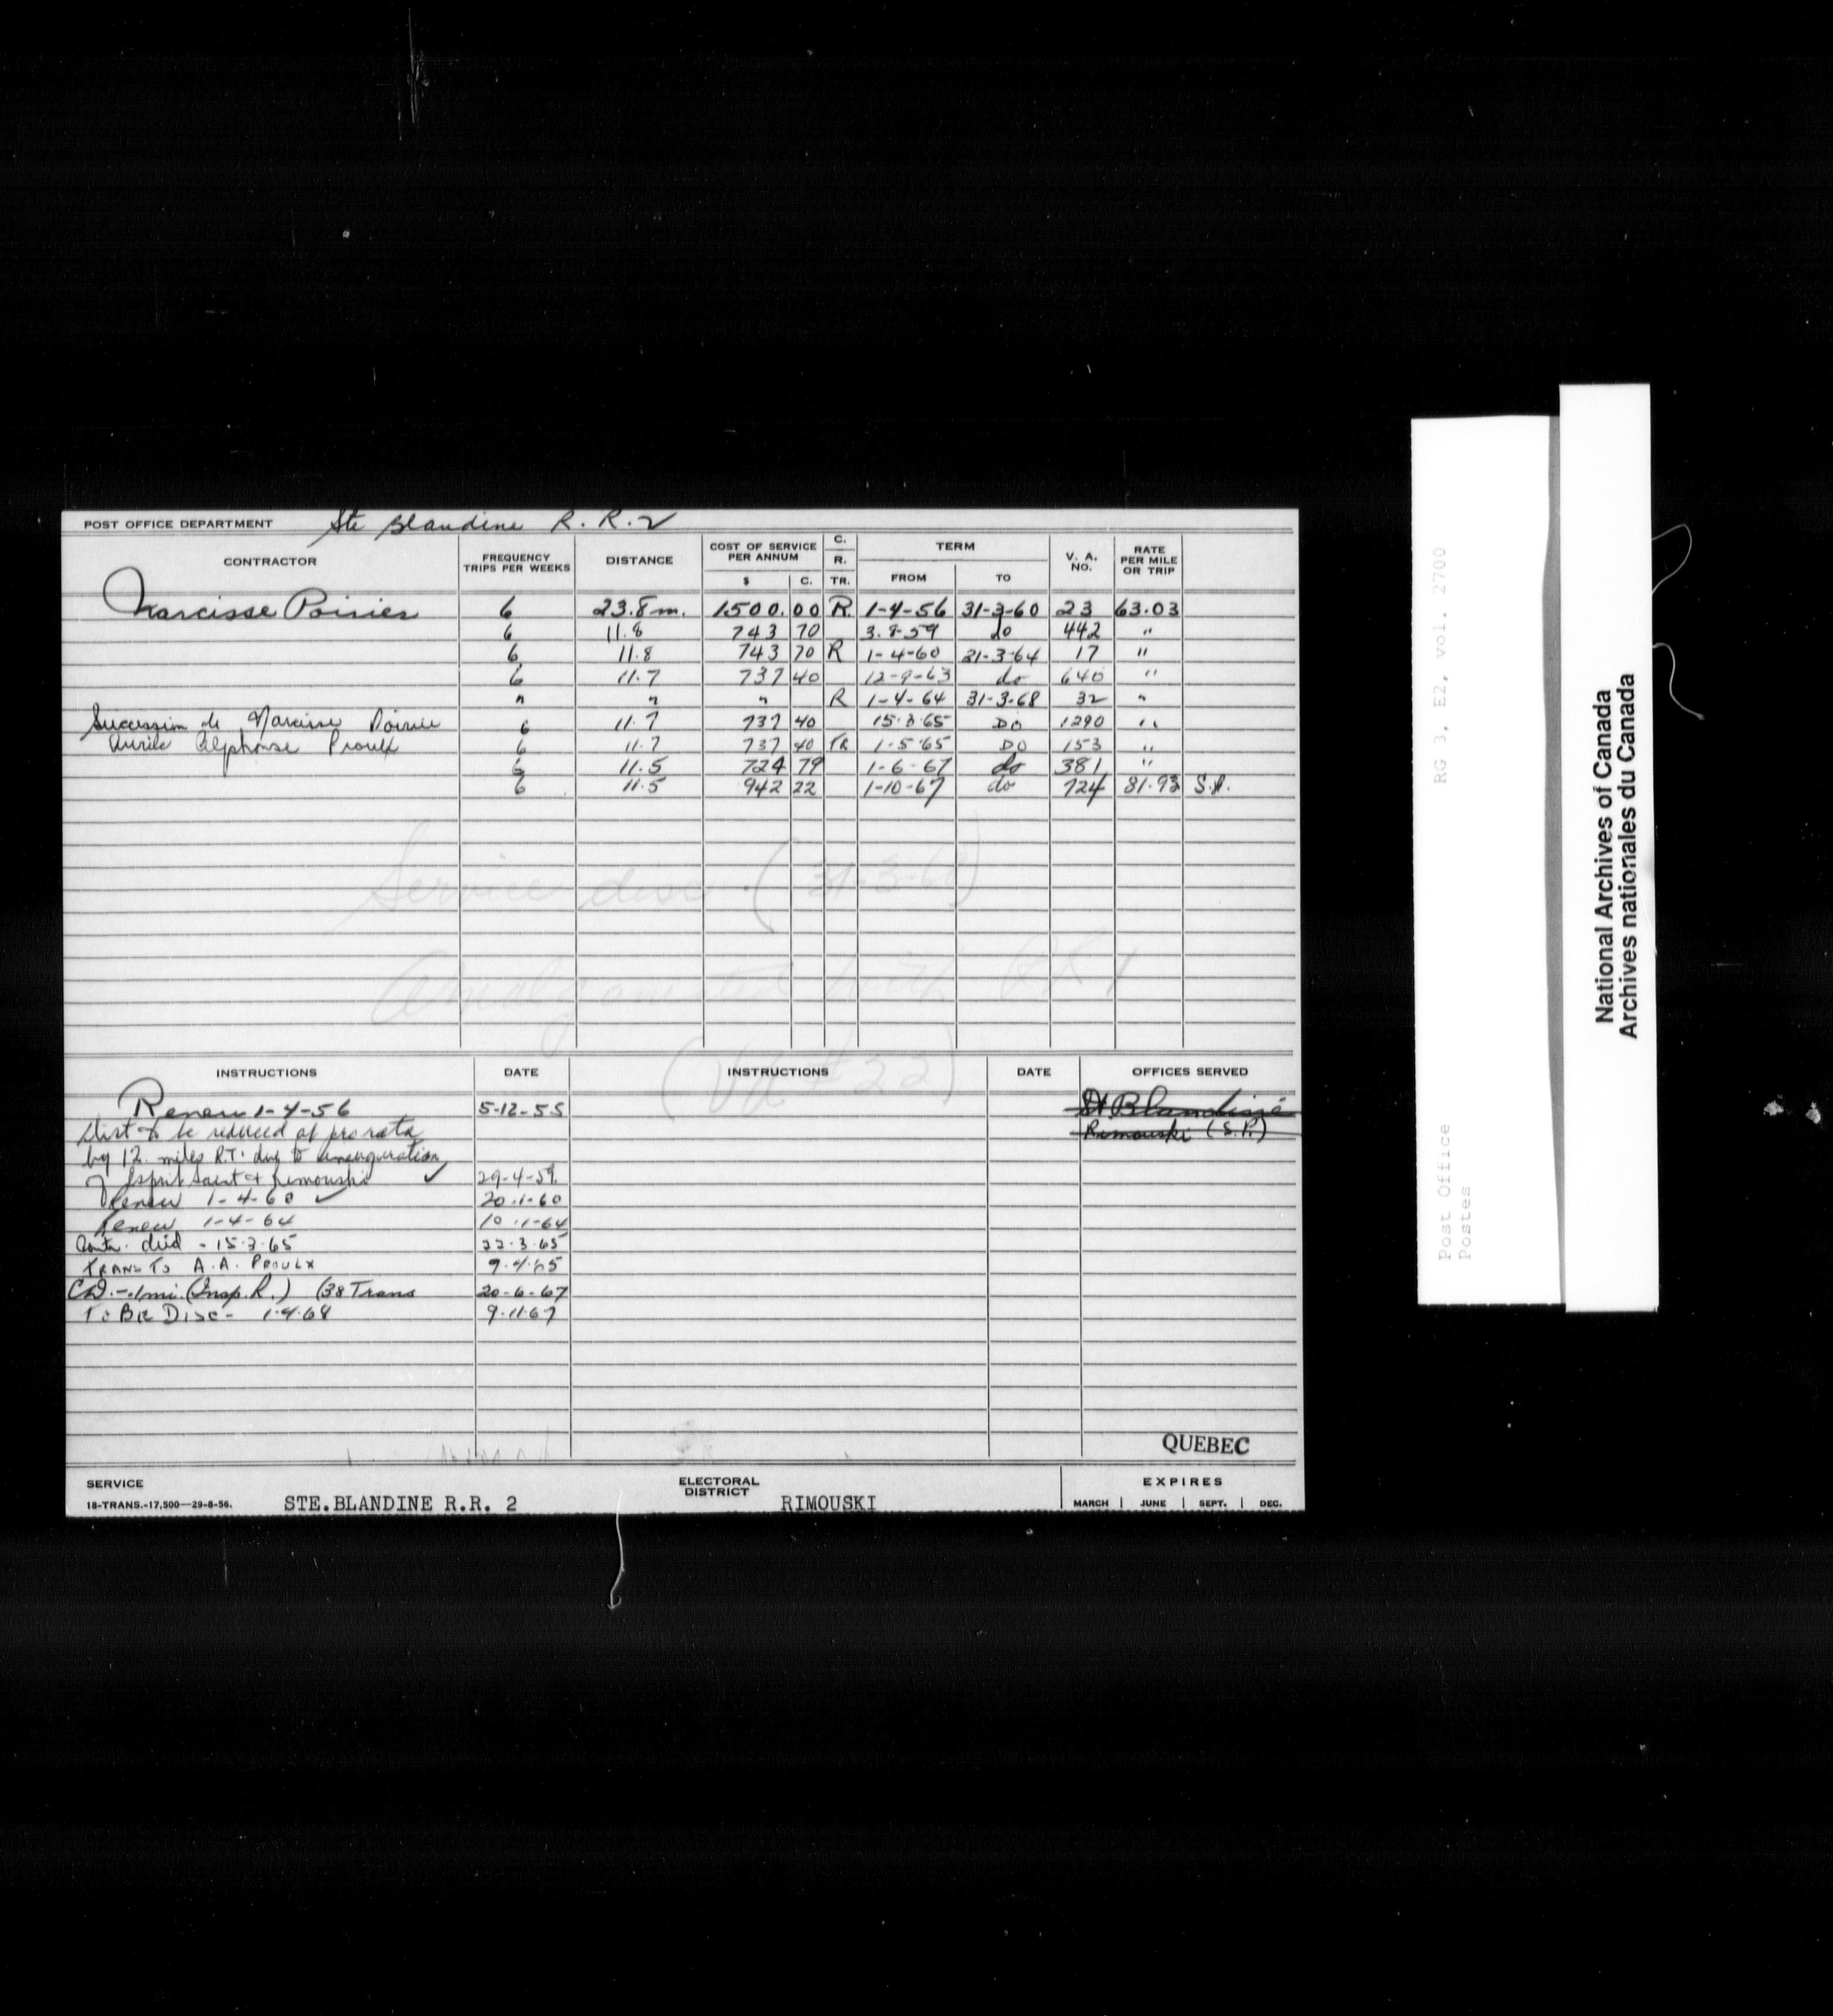 POST OFFICE DEPARTMENT Ste Blandine R. R. 2
CONTRACTOR FREQUENCY TRIPS PER WEEKS DISTANCE COST OF SERVICE PER ANNUM $ C. C. R. TR. TERM FROM TO V. A. NO. RATE PER MILE OR TRIP
Narcisse Poirier 6 23.8 m. 1500.00 R. 1-4-56 31-3-60 23 63.03
6 11.8 743 70 3.8-59 do 442 "
6 11.8 743 70 R 1-4-60 31-3-64 17 "
6 11.7 737 40 12-9-63 do 640 "
" " " R 1-4-64 31-3-68 32 "
Succession de Narcisse Poirier 6 11.7 737 40 15.3.65 DO 1290 "
Aurile Alphonse Proulx 6 11.7 737 40 TR 1-5-65 DO 153 "
6 11.5 724 79 1-6-67 do 381 "
6 11.5 942 22 1-10-67 do 724 81.93 S.P.
Service disc. (31-3-68)
Amalgamated with RR 1
(VA # 22)
INSTRUCTIONS DATE INSTRUCTIONS DATE OFFICES SERVED
Renew 1-4-56 5-12-55 St Blandine
Dist to be reduced at pro rata Rimouski (S.P.)
by 12 miles R.T. due to inauguration
of Esprit Saint & Rimouski ✓ 29-4-59
Renew 1-4-60 ✓ 20.1-60
Renew 1-4-64 10.1-64
Contr. died - 15.3.65 22-3.65
TRANS TO A.A. PROULX 9.4.65
CD. - .1mi. (Insp. R.) (38 Trans 20-6-67
To Be Disc - 1.4.68 9.11.67
QUEBEC
SERVICE
18-TRANS.-17,500—29-8-56. STE.BLANDINE R.R. 2 ELECTORAL DISTRICT RIMOUSKI EXPIRES MARCH JUNE SEPT. DEC.
Post Office RG 3, E2, vol. 2700
Postes
National Archives of Canada
Archives nationales du Canada